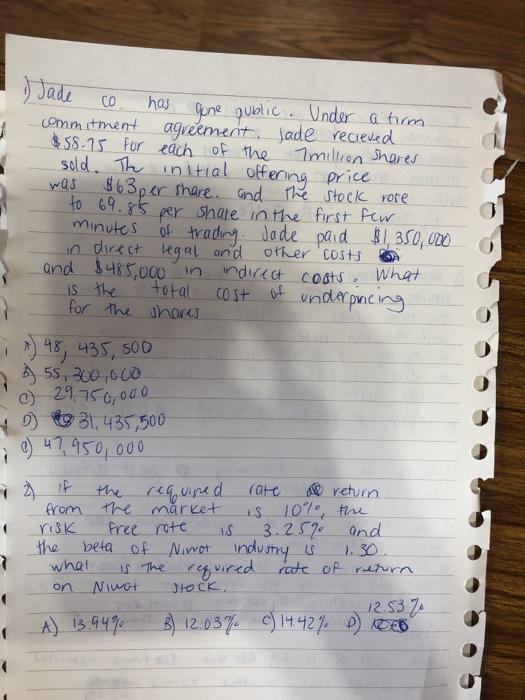 1) Jade co. has gone public. Under a firm
commitment agreement, Jade recieved
$58.75 for each of the 7million shares
sold. The initial offering price
was $63 per share. and the stock rose
to 69.85 per share in the first few
minutes of trading. Jade paid $1,350,000
in direct legal and other costs
and $485,000 in indirect costs. What
is the total cost of underpricing
for the shares
A) 48, 435, 500
B) 55, 300, 000
C) 29,750,000
D) 31,435,500
e) 47,950,000
2) if the required rate return
from the market is 10%, the
risk free rate is 3.25% and
the beta of Niwot industry is 1.30.
what is the required rate of return
on Niwot stock.
A) 13.94% B) 12.03% C) 14.42% D) 12.53%